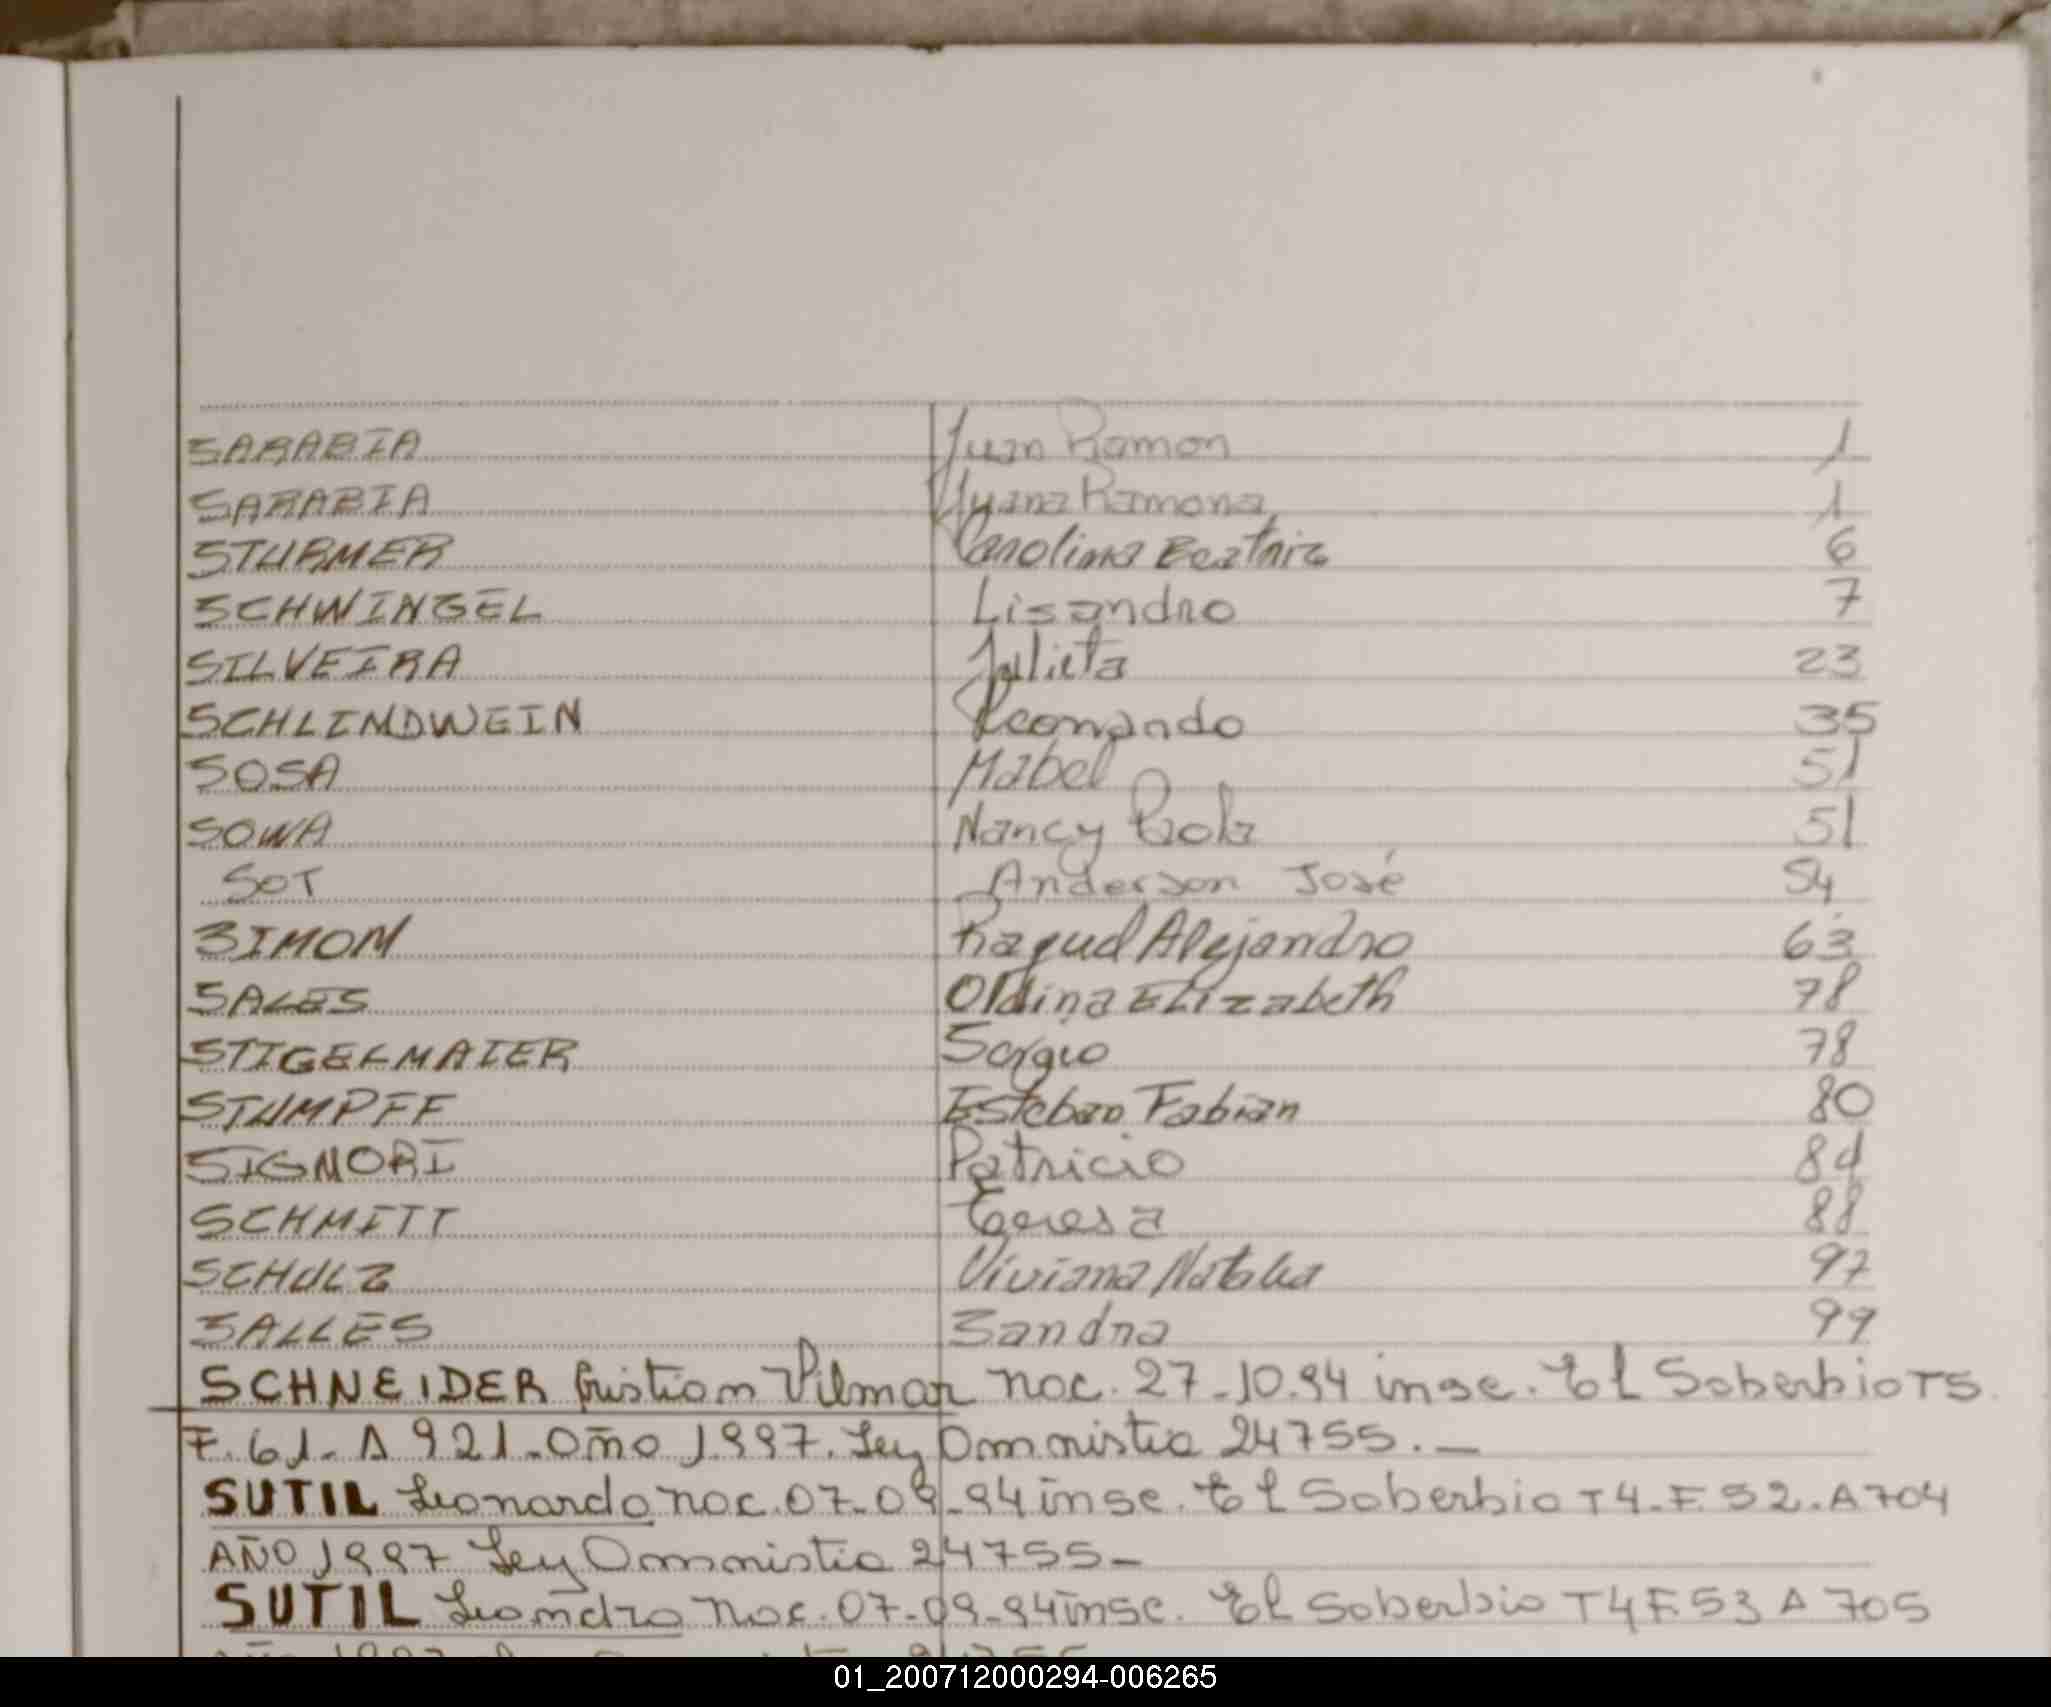 SARABIA Juan Ramon 1
SARABIA Juana Ramona 1
STURMER Carolina Beatriz 6
SCHWINGEL Lisandro 7
SILVEIRA Julieta 23
SCHLINDWEIN Leonardo 35
SOSA Mabel 51
SOWA Nancy Paola 51
SOT Anderson José 54
SIMON Alejandro 63
SALES Oldina ELizabeth 78
STIGELMAIER Sergio 78
STUMPFF Esteban Fabian 80
SIGNORI Patricio 84
SCHMITT Teresa 88
SCHULZ Viviana Natalia 97
SALLES Sandra 99
SCHNEIDER Cristian Vilmar nac. 27-10.94 insc. El Soberbio T5
F. 61- A 921- año 1997. Ley Ommnistia 24755.-
SUTIL Leonardo nac. 07-09-94 insc. El Soberbio T4-F.52.A704
AÑO 1997 Ley Ommnistia 24755-
SUTIL Leandro nac. 07-09-94 insc. El Soberbio T4F.53 A 705
01_200712000294-006265